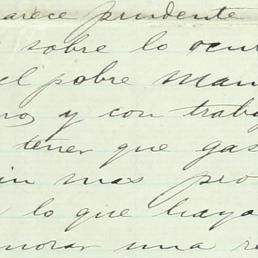 arece prudente
sobre lo ocur
el pobre Man
y con traba
tener que gas
in mas pro
lo que haya
morar una re